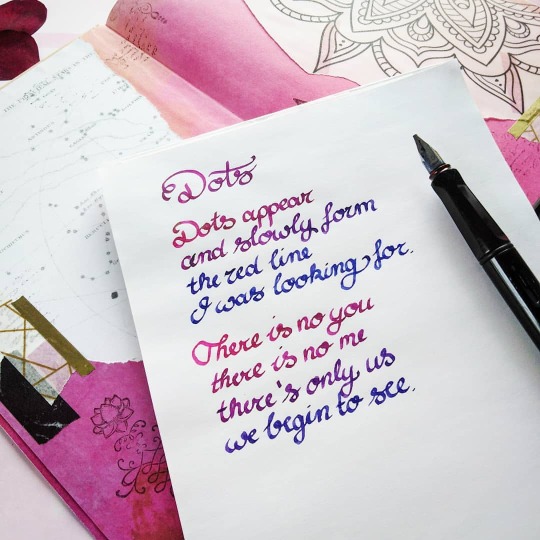 Dots
Dots appear
and slowly form
the red line
I was looking for.
There is no you
there is no me
there's only us
we begin to see.